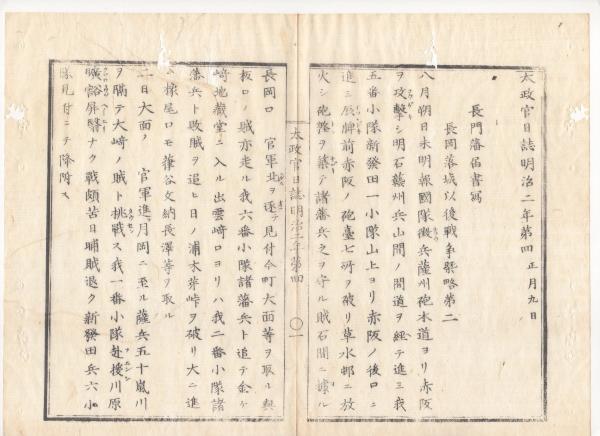 太政官日誌明治二年第四 正月九日
長門藩届書寫
長岡落城以後戦争畧略第二
八月朔日未明報國隊徴兵薩州砲本道ヨリ赤阪
ヲ攻撃シ明石藝州兵山間ノ間道ヲ経テ進ミ我
五番小隊新發田一小隊山上ヨリ赤阪ノ後口ニ
進ミ辰牌前赤阪ノ砲臺七所ヲ破リ草水邨ニ放
火シ砲臺ヲ築テ諸藩兵之ヲ守ル賊石間ニ據ル
太政官日誌明治二年第四 〇一
長岡口 官軍北ヲ逐テ見付今町大面等ヲ取ル與
板口ノ賊亦走ル我六番小隊諸藩兵ト追テ金ケ
崎地藏堂ニ入ル出雲崎口ヨリハ我二番小隊諸
藩兵ト敗賊ヲ追ヒ日ノ浦木芽峠ヲ破リ大ニ進
ミ椽尾口モ葎谷文納長澤等ヲ取ル
二日大面ノ 官軍進月岡ニ至ル薩兵五十嵐川
ヲ隔テ大崎ノ賊ト挑戦ス我一番小隊赴援川原
曠豁屏翳ナク戦頗苦日晡賊退ク新發田兵六小
隊見付ニテ降附ス